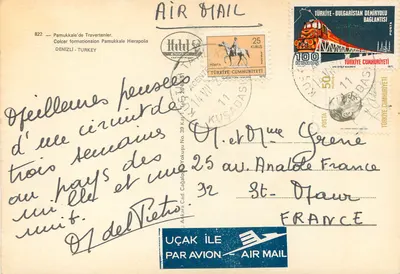 AIR MAIL
822 - Pamukkale'de Travertenler.
Calcer formacionlari Pamukkale Hierapolis
DENİZLİ - TURKEY
25
TÜRKİYE CUMHURİYETİ
TÜRKİYE - BULGARİSTAN DEMİRYOLU
BAĞLANTISI
100
TÜRKİYE CUMHURİYETİ
50
POSTA
TÜRKİYE CUMHURİYETİ
KUŞADASI
Meilleures pensées
d'un circuit de
trois semaines
au pays des
mille et une
nuit.
M del Pietro
M. et Mme Grené
25 av. Anatole France
92 St-Maur
FRANCE
UÇAK İLE
PAR AVION - AIR MAIL